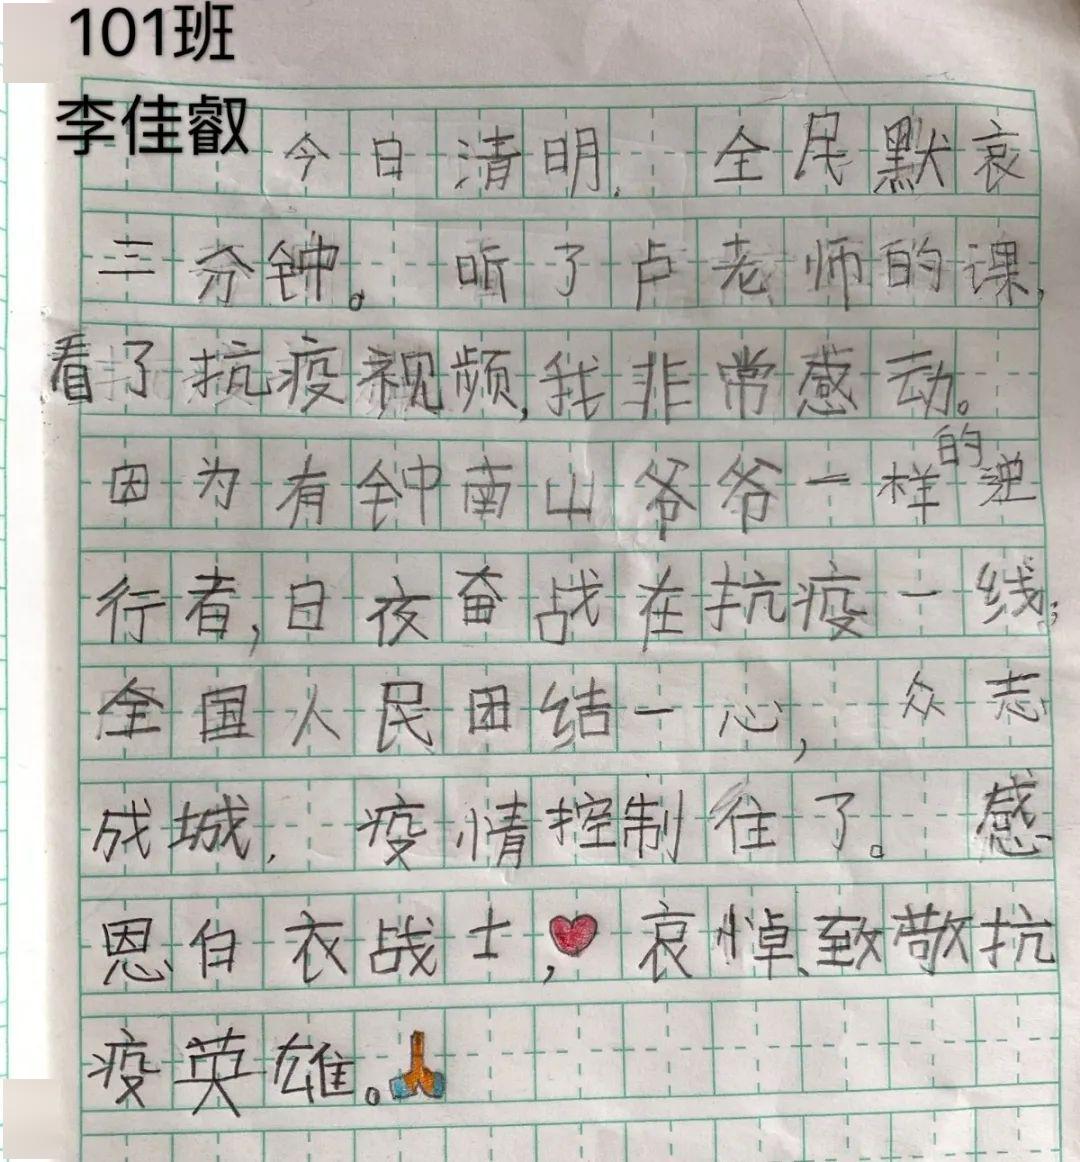 101班
李佳叡
今日清明，全民默哀
三分钟。听了卢老师的课，
看了抗疫视频，我非常感动。
因为有钟南山爷爷一样的逆
行者，日夜奋战在抗疫一线；
全国人民团结一心，众志
成城，疫情控制住了。感
恩白衣战士，❤️哀悼、致敬抗
疫英雄。🙏